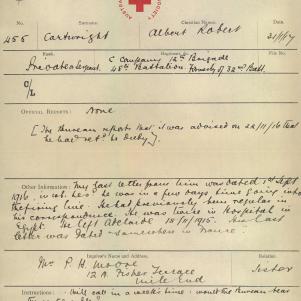 No.
Surname
Christian Names
Date
455
Cartwright
Albert Robert
21/1/17
Rank
Regiment, &c.
File No.
Private
C Company 12th Brigade
48th Battalion. Formerly of 32nd Batt.
OFFICIAL REPORTS :
None
[The Bureau reports that it was advised on 22/11/16 that
he had retd to duty].
Other Information: My last letter from him was dated 1st Sept
1916 in wh. he sd he was in a few days time going into
the firing line. He had previously been regular in
his correspondence. He was twice in Hospital in
Egypt. He left Adelaide 18/11/1915. His last
letter was dated - Somewhere in France.
Inquirer's Name and Address,
Relation,
Mrs P. H. Moore
Sister
12A Fisher Terrace
Mile End
Instructions :
will call in a week's time : would the Bureau